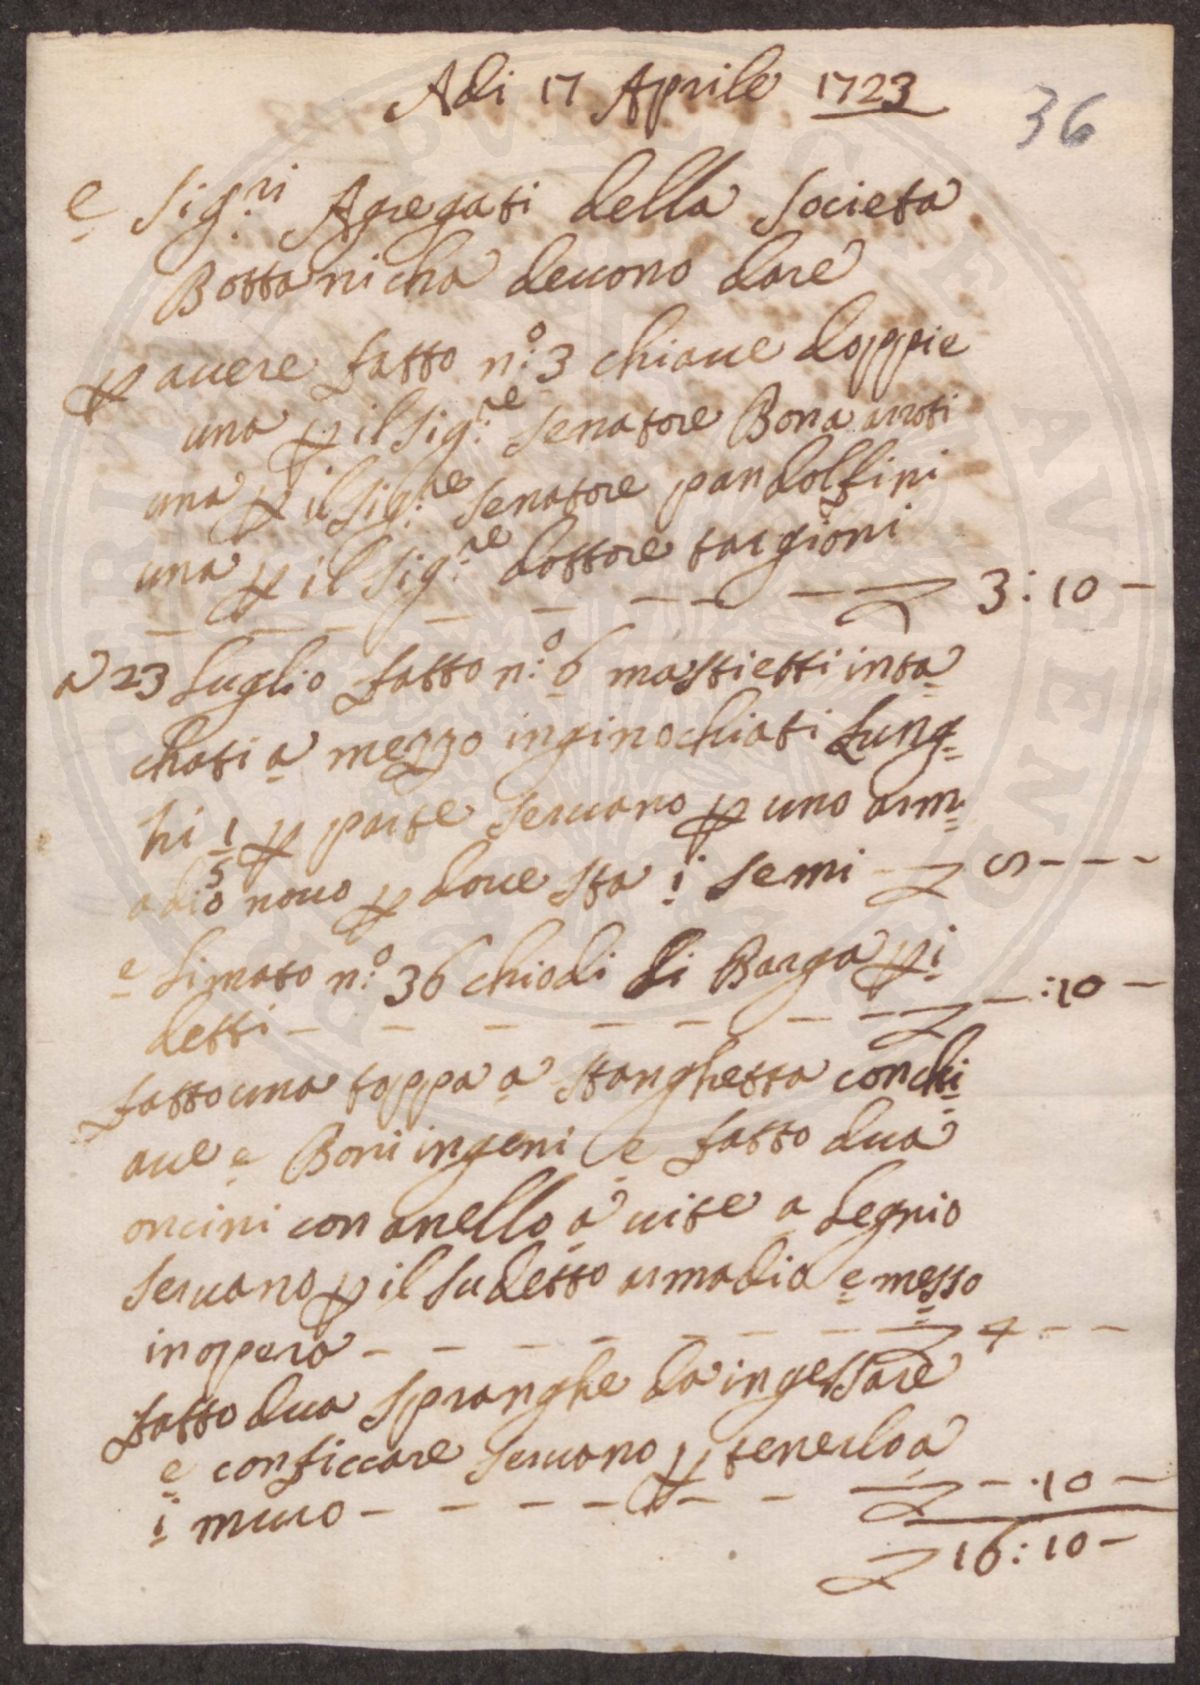 Adi 17 Aprile 1723
36
e Sig:ri Agregati della Societa
Bottanicha deuono dare
p auere fatto n:o 3 chiaue doppie
una p il Sig:re Senatore Bona aroti
una p il Sig:re Senatore pandolfini
una p il Sig:re dottore targioni
— — — — — — — 3:10 —
a 23 Luglio fatto n:o 6 mastietti inta
chati a mezzo inginochiati Lung=
hi 1/5 p parte seruano p uno arm=
adio nouo p doue sta i semi — 8 — — —
e Limato n:o 36 chiodi di Barga p i
detti — — — — — — — — :10 —
fatto una toppa a stanghetta con chi
aue e Boni ingeni e fatto dua
oncini con anello a uite a Legnio
seruano p il sudetto armadio e messo
in opera — — — — — — 4 — —
fatto dua spranghe da ingessare
e conficcare seruano p tenerlo a
i muro — — — — — — — — :10 —
16:10 —